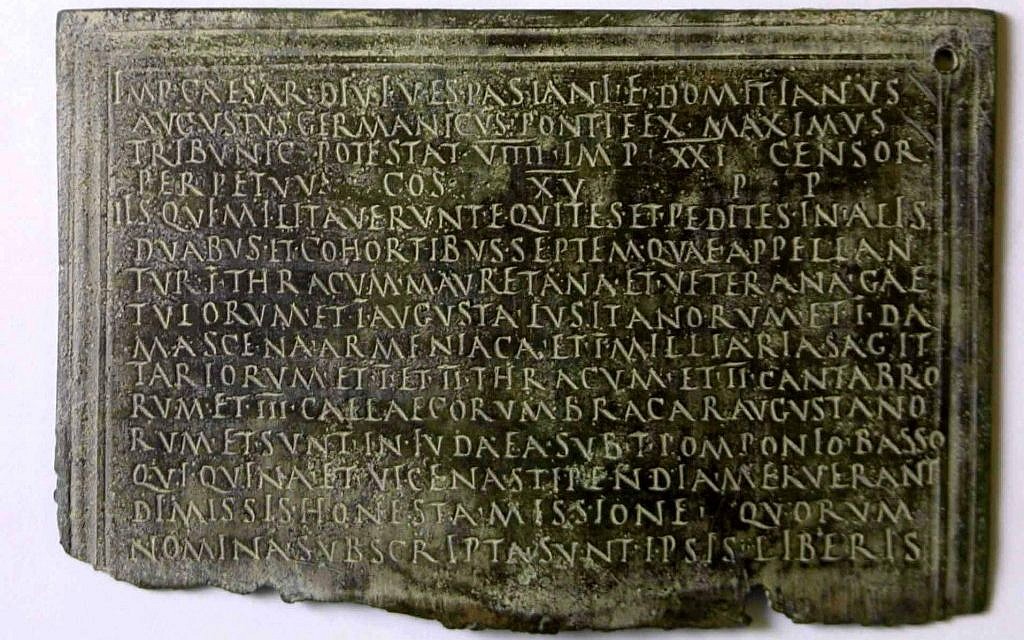 IMP·CAESAR·DIVI·VESPASIANI·F·DOMITIANVS
AVGVSTVS GERMANICVS·PONTIFEX MAXIMVS
TRIBVNIC·POTESTAT·V̅I̅I̅I̅I̅·IMP·X̅X̅I̅ CENSOR
PERPETVVS COS X̅V̅ P P
IIS·QVI·MILITAVERVNT·EQVITES·ET·PEDITES·IN·ALIS
DVABVS·ET·COHORTIBVS·SEPTEM·QVAE·APPELLAN
TVR·I̅·THRACVM·MAVRETANA·ET·VETERANA·GAE
TVLORVM·ET·I̅·AVGVSTA·LVSITANORVM·ET·I̅·DA
MASCENA·ARMENIACA·ET·I̅·MILLIARIA·SAGIT
TARIORVM·ET·I̅·ET·I̅I̅·THRACVM·ET·I̅I̅·CANTABRO
RVM·ET·I̅I̅I̅·CALLAECORVM·BRACARAVGVSTANO
RVM·ET·SVNT·IN·IVDAEA·SVB·T·POMPONIO·BASSO
QVI·QVINA·ET·VICENA·STIPENDIA·MERVERANT
DIMISSIS·HONESTA·MISSIONE· QVORVM
NOMINA·SVBSCRIPTA·SVNT·IPSIS·LIBERIS